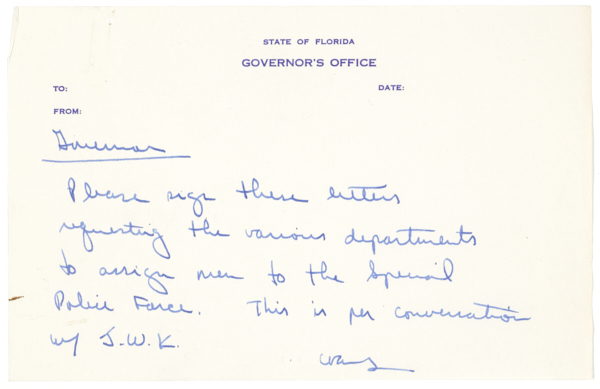 STATE OF FLORIDA
GOVERNOR'S OFFICE
TO: DATE:
FROM:
Governor
Please sign these letters
requesting the various departments
to assign men to the Special
Police Force. This is per conversation
w/ J.W.K.